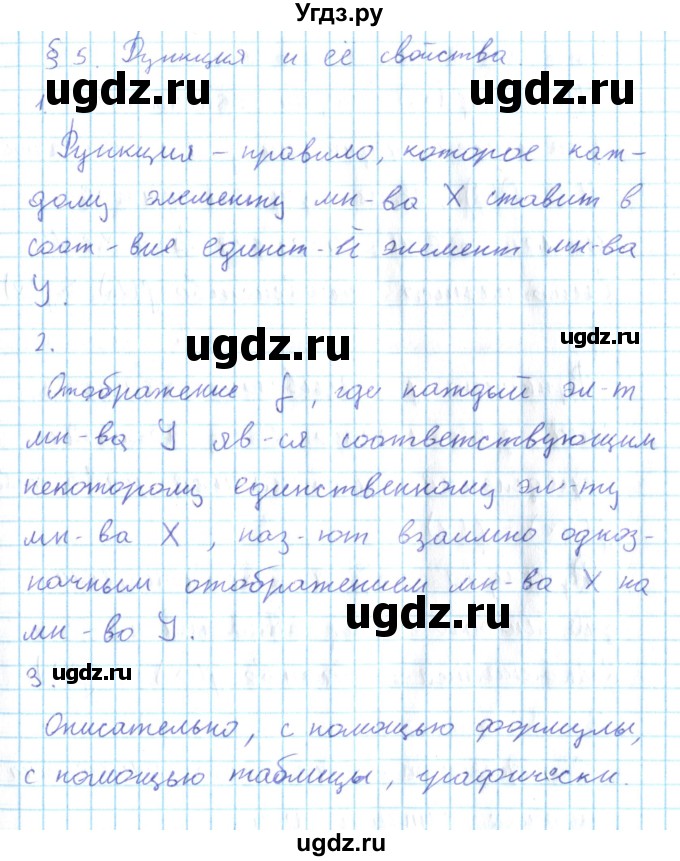 Угдз.ру
§ 5. Функция и её свойства.
ugdz.ru ugdz.ru
1.
Функция – правило, которое каж-
дому элементу мн-ва X ставит в
соот-вие единст-й элемент мн-ва
У.
ugdz.ru ugdz.ru
2.
Отображение f, где каждый эл-т
мн-ва У яв-ся соответствующим
некоторому единственному эл-ту
мн-ва X, наз-ют взаимно одноз-
начным отображением мн-ва X на
мн-во У.
ugdz.ru
ugdz.ru
3.
Описательно, с помощью формулы,
с помощью таблицы, графически.
ugdz.ru
ugdz.ru